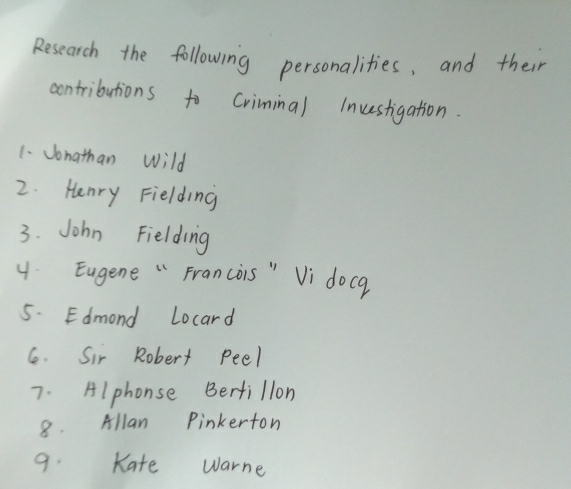 Research the following personalities, and their
contributions to Criminal Investigation.
1- Jonathan Wild
2. Henry Fielding
3. John Fielding
4. Eugene "Francois" Vidocq
5. Edmond Locard
6. Sir Robert Peel
7. Alphonse Bertillon
8. Allan Pinkerton
9. Kate Warne